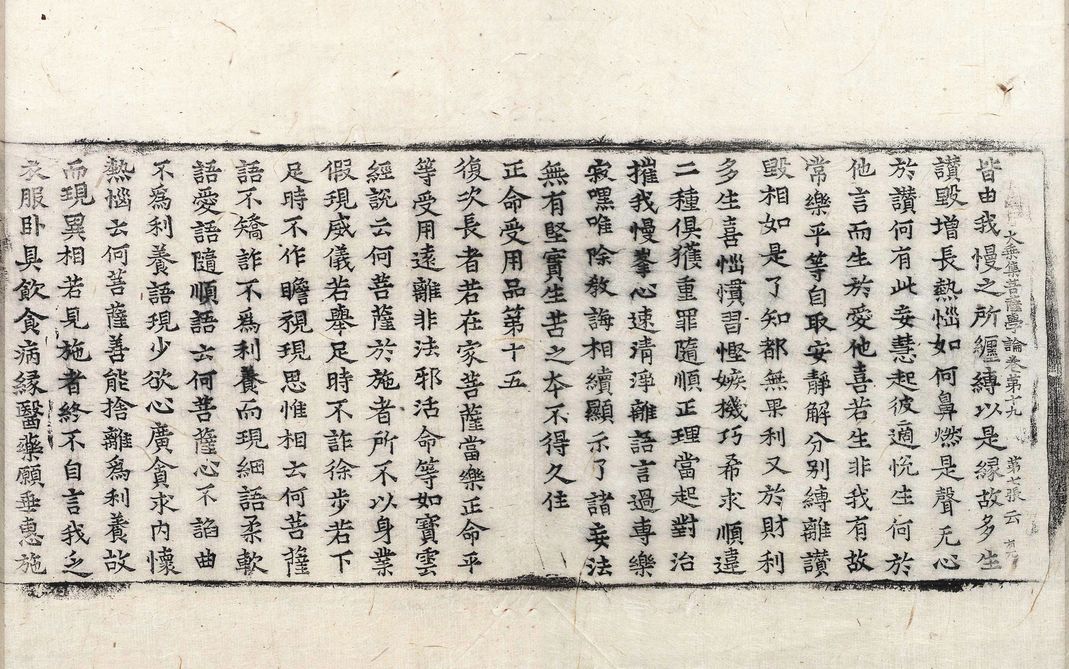 大乘集菩薩學論卷第十九 第七張 云
皆由我慢之所纏縛以是緣故多生
讃毀增長熱惱如何鼻燃是聲无心
於讃何有此妄慧起彼適悅生何於
他言而生於愛他喜若生非我有故
常樂平等自取安靜解分別縛離讃
毀相如是了知都無果利又於財利
多生喜惱慣習慳嫉機巧希求順違
二種俱獲重罪隨順正理當起對治
摧我慢峯心速清淨離語言過專樂
寂嘿唯除敎誨相續顯示了諸妄法
無有堅實生苦之本不得久住
正命受用品第十五
復次長者若在家菩薩當樂正命平
等受用遠離非法邪活命等如寶雲
經說云何菩薩於施者所不以身業
假現威儀若舉足時不詐徐步若下
足時不作瞻視現思惟相云何菩薩
語不矯詐不爲利養而現細語柔軟
語愛語隨順語云何菩薩心不諂曲
不爲利養語現少欲心廣貪求內懷
熱惱云何菩薩善能捨離爲利養故
而現異相若見施者終不自言我乏
衣服卧具飲食病緣醫藥願垂惠施